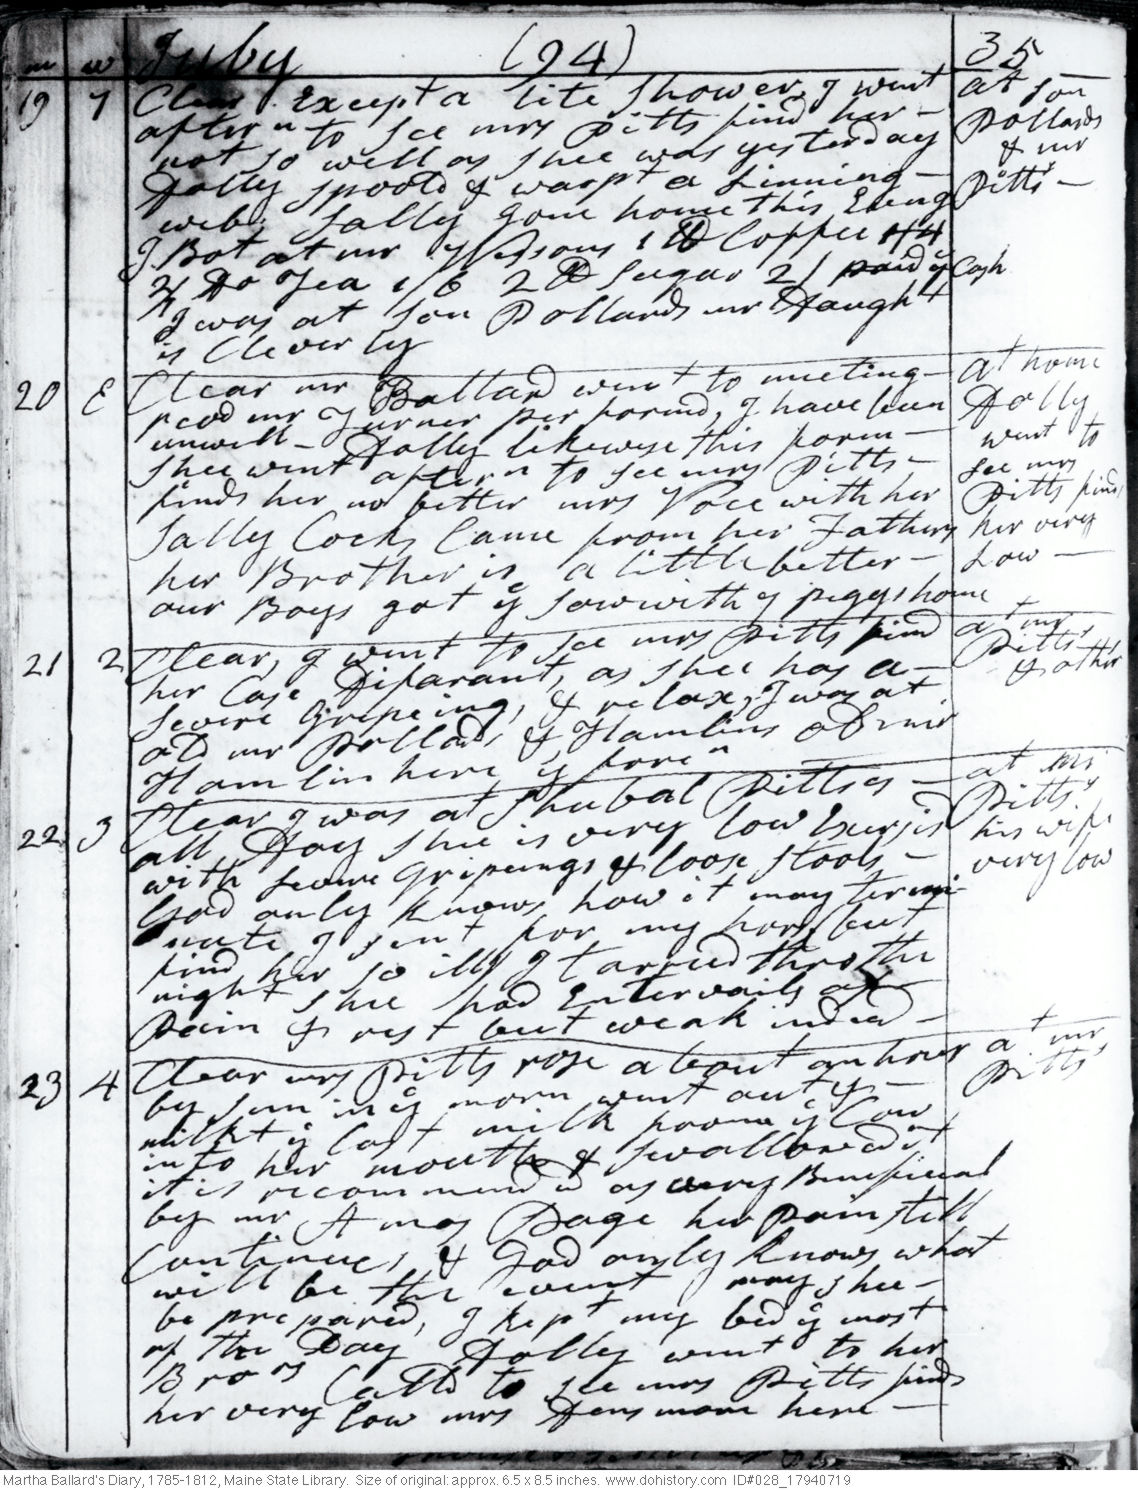 m w July (94) 35
19 7 Clear Except a litte Shower. I went at son
aftern to See mrs Pitts find her - Pollards
not so well as Shee was yesterday & mr
Dolly spoold & warpt a Linning - Pitts -
web. Sally gone home this Eveng
I Bot at mr 1 lb Coffee
Do Tea 1/6 2 lb Sugar 2/ paid ye Cash
I was at Son Pollards mr Daught
is Cleverly
20 E Clear mr Ballard went to meeting - at home
revd mr Turner performd, I have been Dolly
unwell - Dolly likewise this forem - went to
Shee went aftern to See mrs Pitts - See mrs
finds her no better mrs Voce with her Pitts finds
Sally Cocks Came from her Fathers her very
her Brother is a little better - Low -
our Boys got ye Sow with ye piggs home
21 2 Clear, I went to See mrs Pitts find at mr
her Case Difarant, as Shee has a - Pitts
Severe Gripeing, & relax, I was at & othr
old mr Pollards & Hamlins
Hamlin here ye foren
22 3 Clear I was at Shubal Pittses - at mr
all Day Shee is very low Exersisd Pitts
with Severe Gripeings & loose Stools - his wife
God only knows how it may termi very low
nate I sent for my hors but
find her so ill I tarried thro the
night Shee had Entervails of
Pain & rest but weak indeed -
23 4 Clear mrs Pitts rose about an hour at mr
by Sun in ye morn went out & - Pitts
milkt ye last milk from ye Cow
into her mouth & Swallowed it
it is recommended as very Beneficial
by mr Amos Page her pain still
Continues, & God only knows what
will be the event may shee -
be prepared, I kept my bed ye most
of the Day Dolly went to her
Bros Calld to See mrs Pitts finds
her very low mrs Densmore here -
Martha Ballard's Diary, 1785-1812, Maine State Library. Size of original: approx. 6.5 x 8.5 inches. www.dohistory.com ID#028_17940719